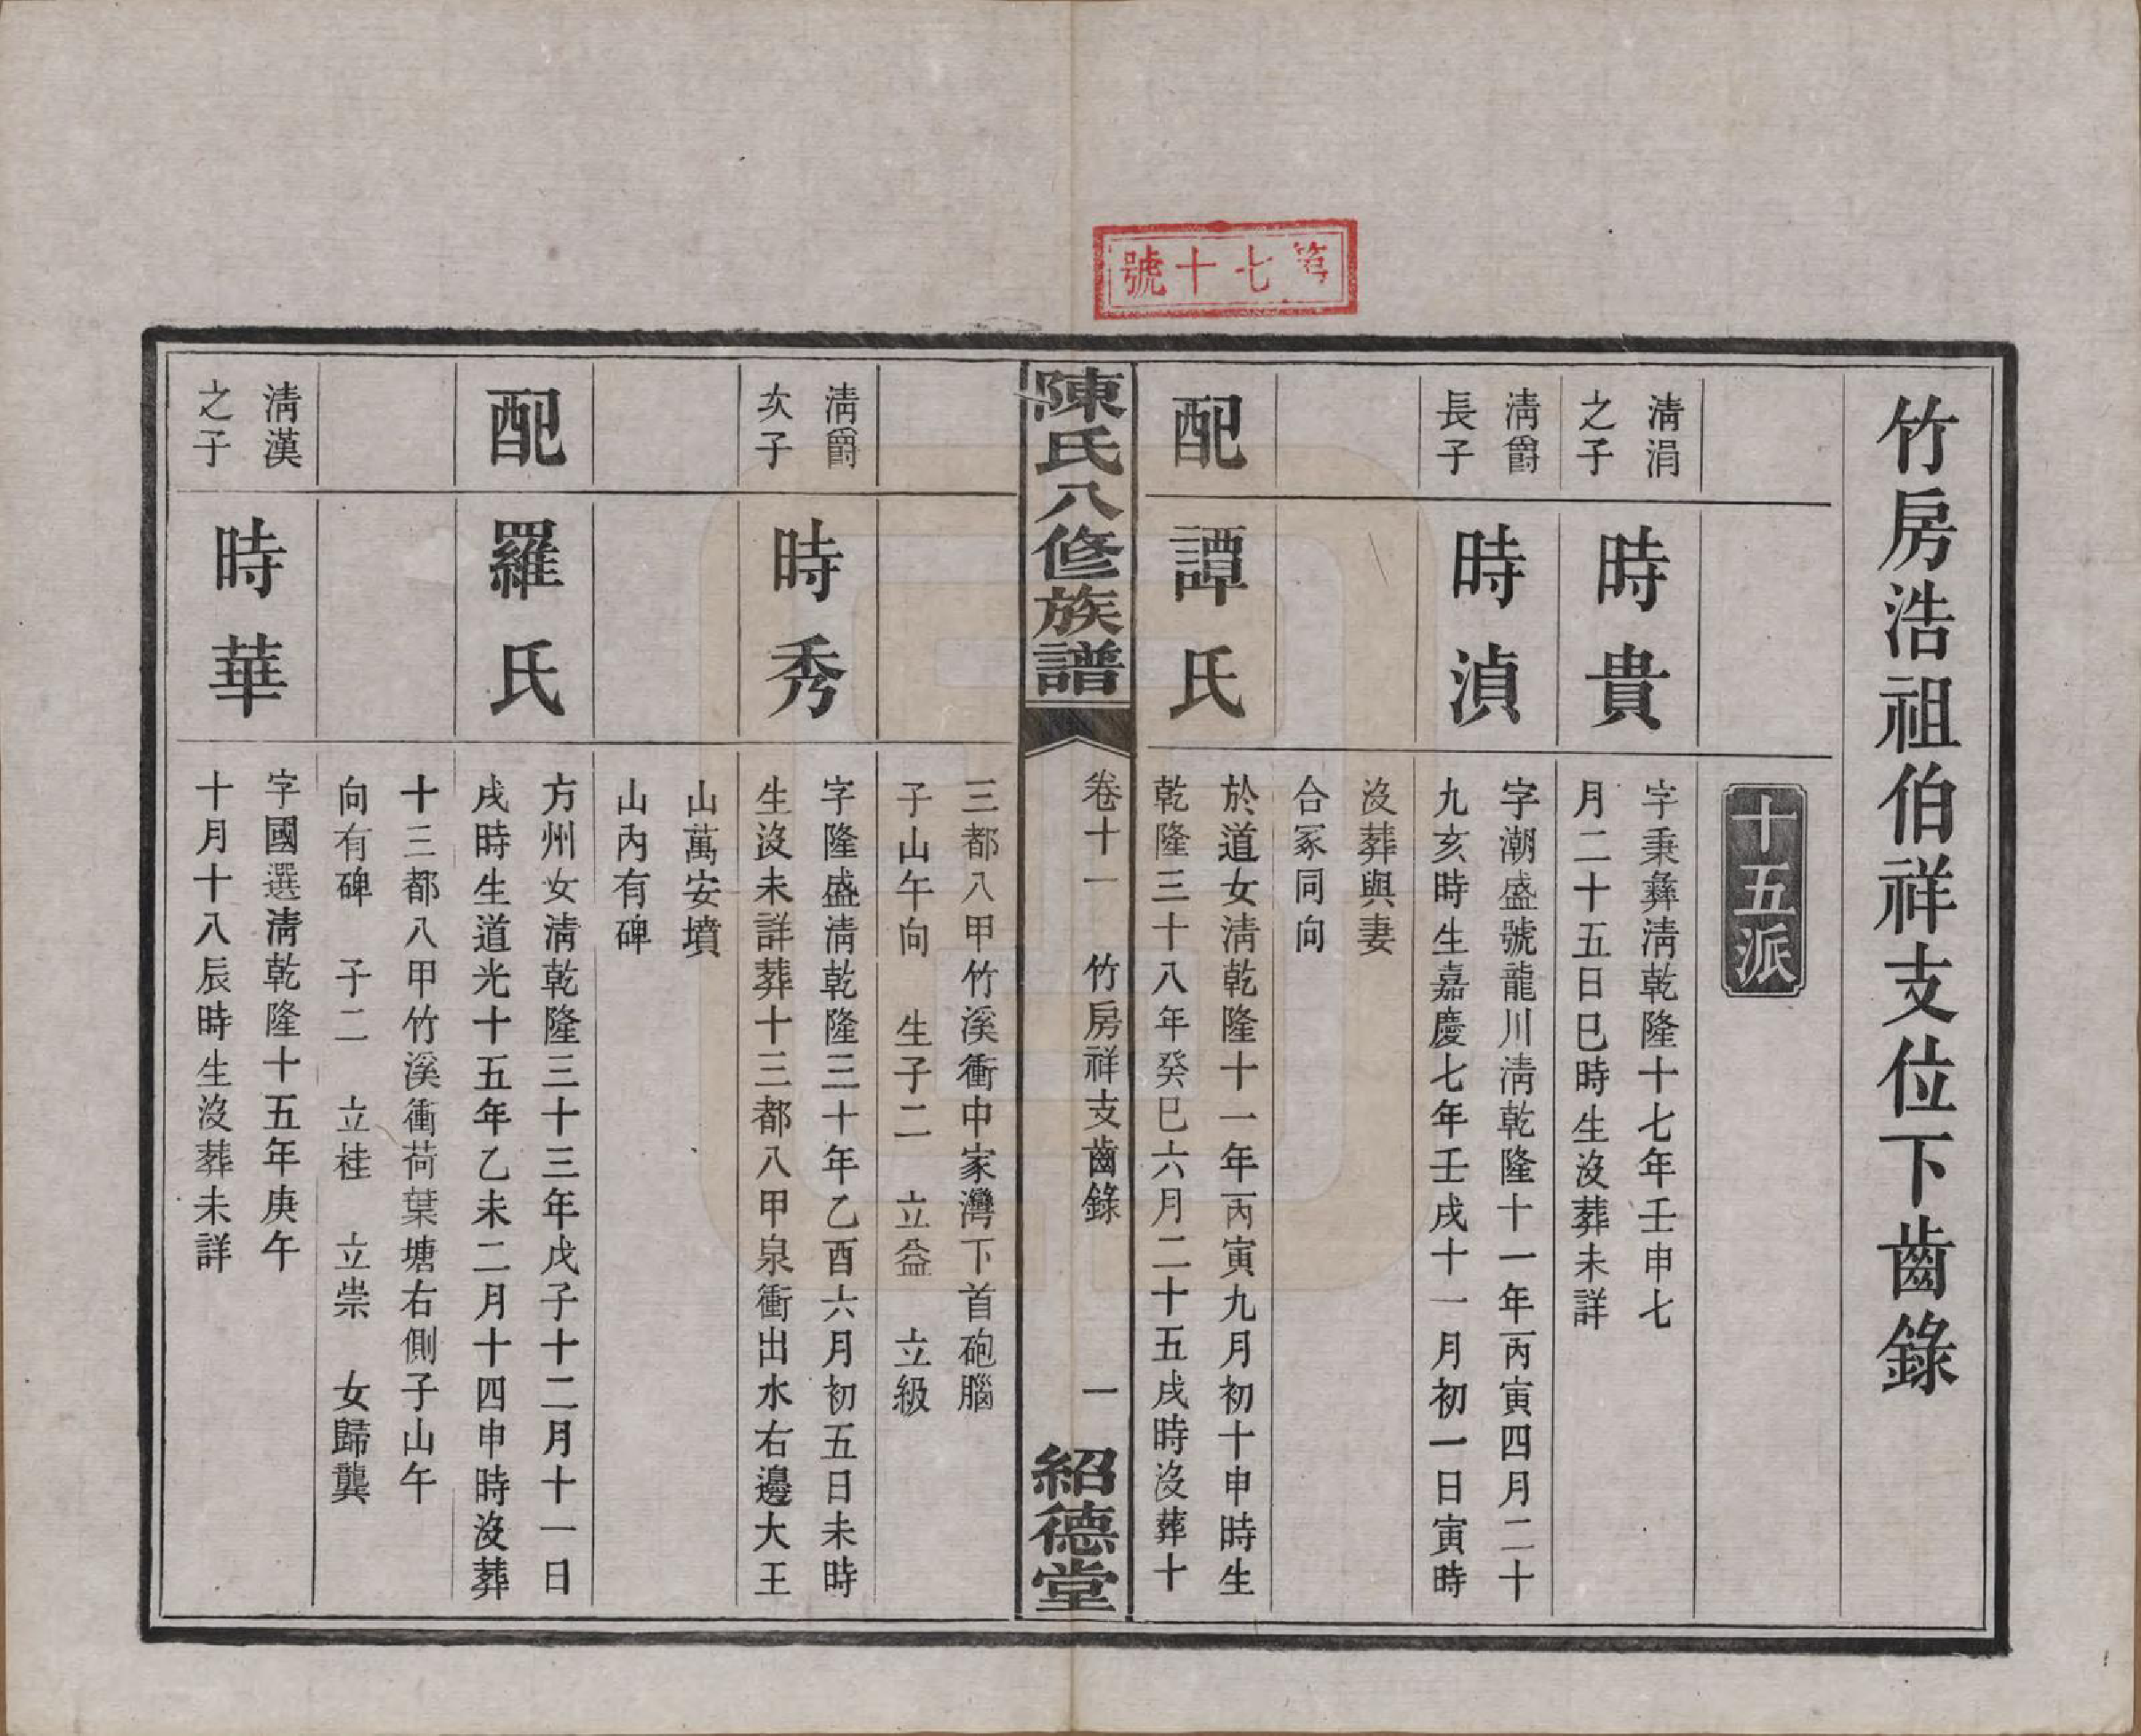 第七十號
竹房浩祖伯祥支位下齒錄
十五派
淸涓
之子
時貴
字秉彝淸乾隆十七年壬申七
月二十五日巳時生沒葬未詳
淸爵
長子
時湞
字潮盛號龍川淸乾隆十一年丙寅四月二十
九亥時生嘉慶七年壬戌十一月初一日寅時
沒葬與妻
合冢同向
配
譚氏
於道女淸乾隆十一年丙寅九月初十申時生
乾隆三十八年癸巳六月二十五戌時沒葬十
陳氏八修族譜
卷十一 竹房祥支齒錄 一
紹德堂
三都八甲竹溪衝中家灣下首砲腦
子山午向 生子二 立益 立級
淸爵
次子
時秀
字隆盛淸乾隆三十年乙酉六月初五日未時
生沒未詳葬十三都八甲泉衝出水右邊大王
山萬安墳
山內有碑
配
羅氏
方州女淸乾隆三十三年戊子十二月十一日
戌時生道光十五年乙未二月十四申時沒葬
十三都八甲竹溪衝荷葉塘右側子山午
向有碑 子二 立桂 立崇 女歸龔
淸漢
之子
時華
字國選淸乾隆十五年庚午
十月十八辰時生沒葬未詳